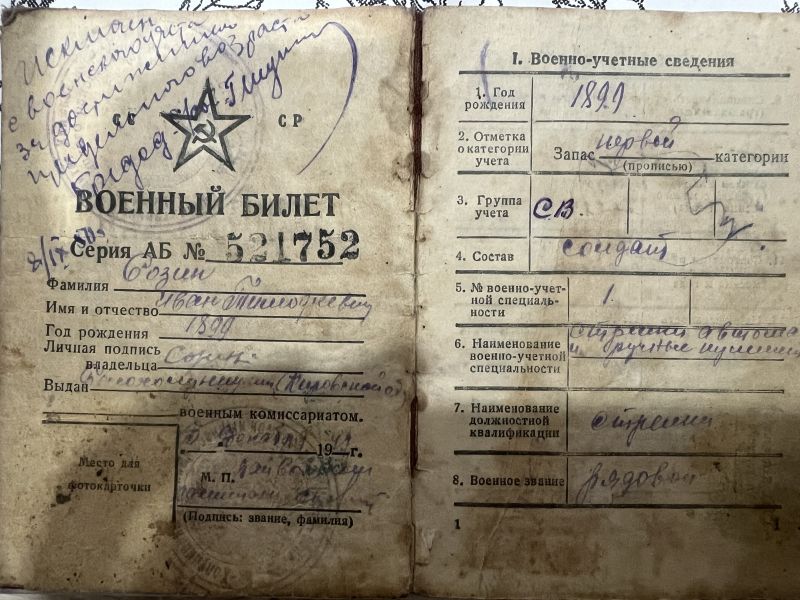 Исключен
с воинского учета
за достижением
предельного возраста
СР
ВОЕННЫЙ БИЛЕТ
Серия АБ № 521752
Фамилия Созин
Имя и отчество Иван Тимофеевич
Год рождения 1899
Личная подпись
владельца Созин
Выдан (Кировской об
военным комиссариатом.
19 г.
М. П.
(Подпись: звание, фамилия)
Место для
фотокарточки
I. Военно-учетные сведения
1. Год
рождения 1899
2. Отметка
о категории
учета Запас первой категории
(прописью)
3. Группа
учета С.В.
4. Состав солдат
5. № военно-учет-
ной специаль-
ности 1.
6. Наименование
военно-учетной
специальности стрелки автома
и ручные пулем
7. Наименование
должностной
квалификации стрелки
8. Военное звание рядовой
1 1